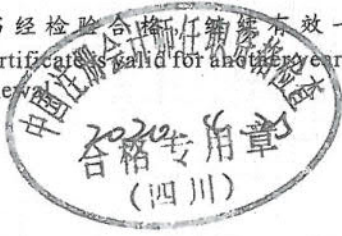 书经检验合格，继续有效一
rtificate is valid for another year
中国注册会计师任职资格检查
合格专用章
（四川）